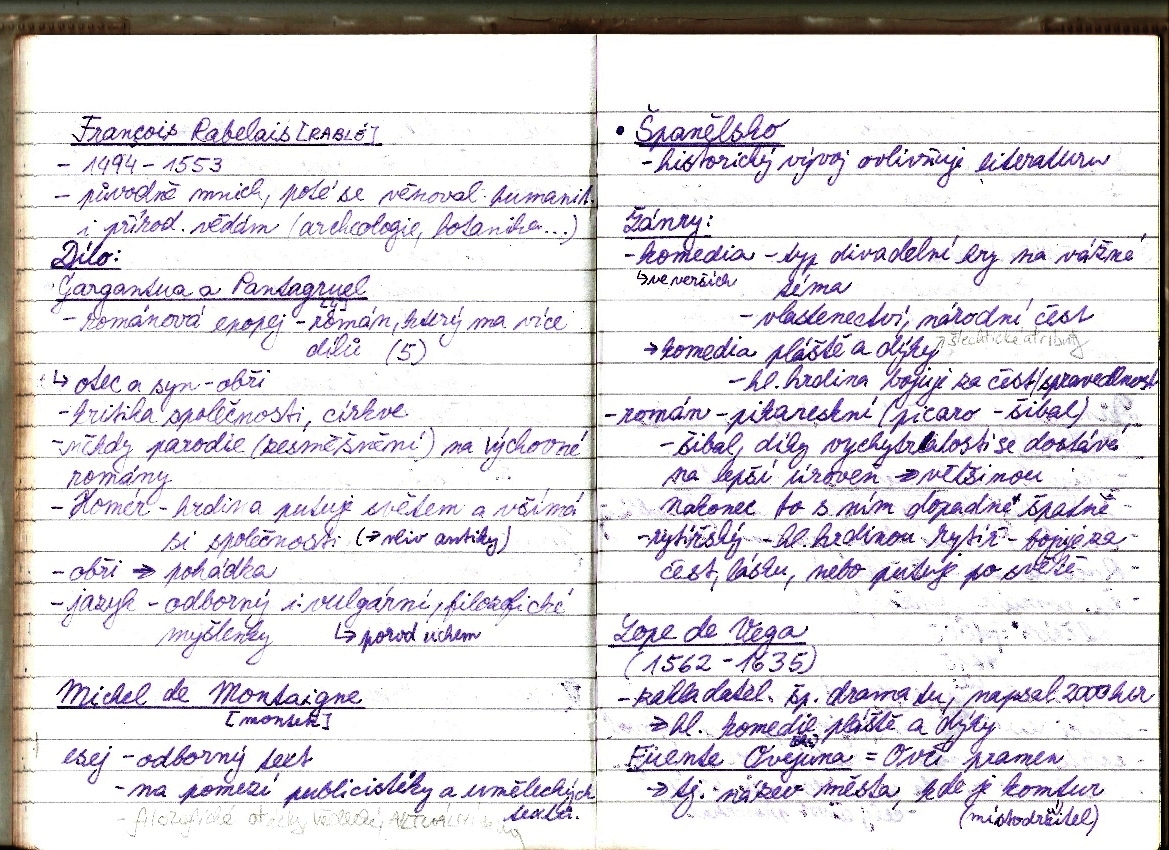 François Rabelais [RABLÉ]
- 1494 - 1553
- původně mnich, poté se věnoval humanit.
i přírod. vědám (archeologie, botanika...)
Dílo:
Gargantua a Pantagruel
- románová epopej - román, který ma více
dílů (5)
↳ otec a syn - obři
- kritika společnosti, církve
- někdy parodie (zesměšnění) na výchovné
romány
- Homér - hrdina putuje světem a všímá
si společnosti (→ vliv antiky)
- obři → pohádka
- jazyk - odborný i vulgární, filozofické
myšlenky ↳ porod uchem
Michel de Montaigne
esej - odborný text
- na pomezí publicistiky a uměleckých
textů.
- filozofické otázky
• Španělsko
- historický vývoj ovlivňuje literaturu
Žánry:
- komedia - typ divadelní hry na vážné
↳ ve verších téma
- vlastenectví, národní čest
→ komedia pláště a dýky → šlechtické atributy
- hl. hrdina bojuje za čest/spravedlnost
- román - pikareskní (picaro - šibal)
- šibal, díky vychytralosti se dostává
na lepší úroveň → většinou
nakonec to s ním dopadne špatně
- rytířský - hl. hrdinou rytíř - bojuje za
čest, lásku, nebo putuje po světě
Lope de Vega
(1562 - 1635)
- zakladatel šp. dramatu, napsal 2000 her
→ hl. komedie pláště a dýky
Fuente Ovejuna = Ovčí pramen
→ tj. název města, kde je komtur
(místodržitel)